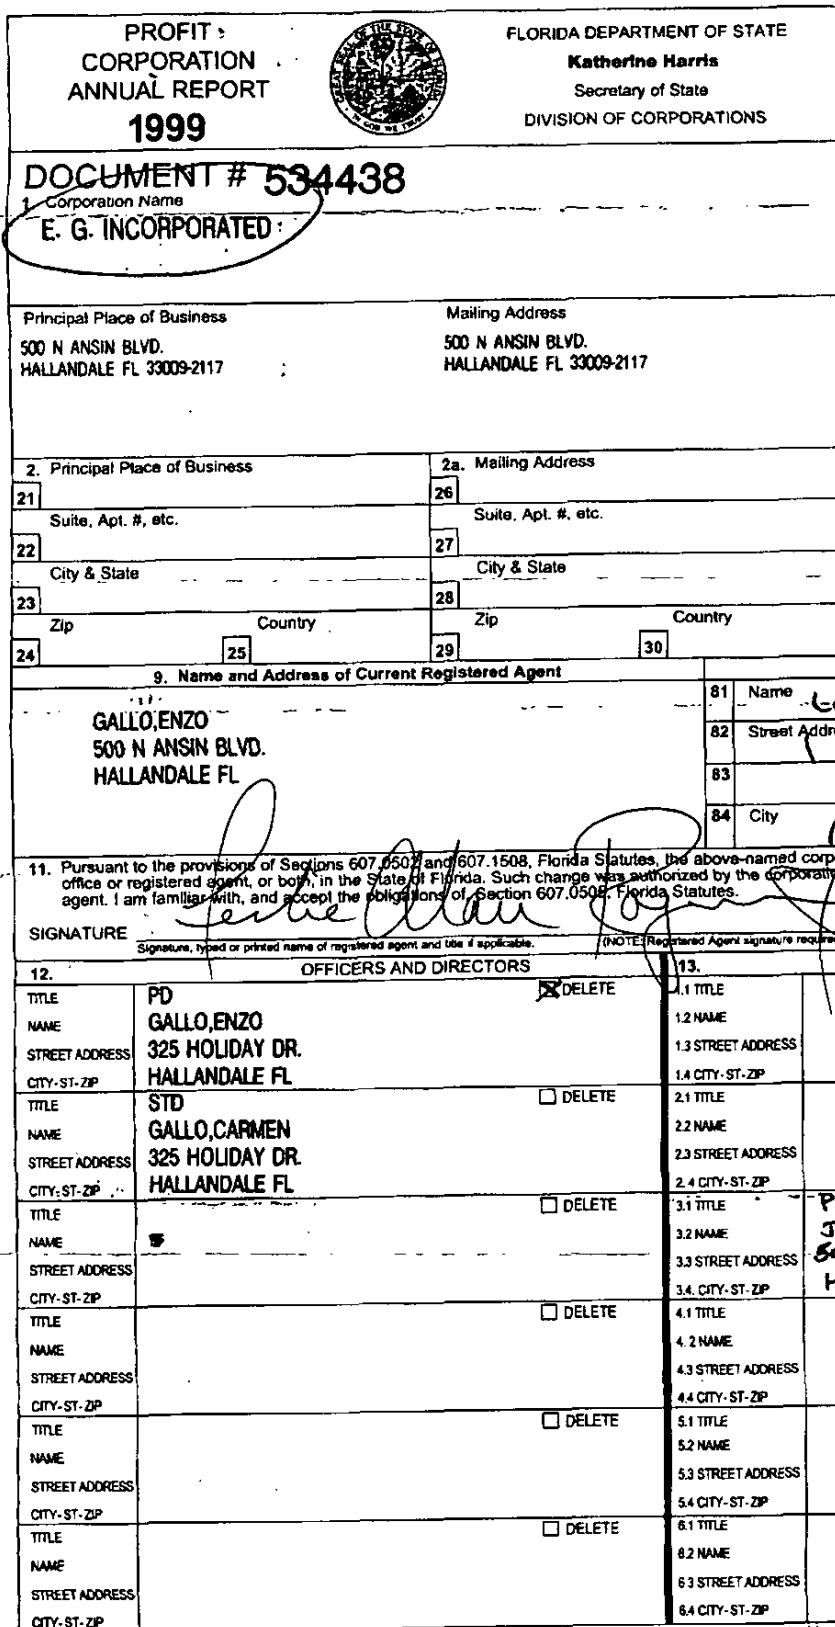 PROFIT
CORPORATION
ANNUAL REPORT
1999
FLORIDA DEPARTMENT OF STATE
Katherine Harris
Secretary of State
DIVISION OF CORPORATIONS
DOCUMENT # 534438
1. Corporation Name
E. G. INCORPORATED
Principal Place of Business
500 N ANSIN BLVD.
HALLANDALE FL 33009-2117
Mailing Address
500 N ANSIN BLVD.
HALLANDALE FL 33009-2117
2. Principal Place of Business
21
Suite, Apt. #, etc.
22
City & State
23
Zip
24
Country
25
2a. Mailing Address
26
Suite, Apt. #, etc.
27
City & State
28
Zip
29
Country
30
9. Name and Address of Current Registered Agent
GALLO,ENZO
500 N ANSIN BLVD.
HALLANDALE FL
81 Name
82 Street Addr
83
84 City
11. Pursuant to the provisions of Sections 607.0502 and 607.1508, Florida Statutes, the above-named corp
office or registered agent, or both, in the State of Florida. Such change was authorized by the corporati
agent. I am familiar with, and accept the obligations of, Section 607.0505, Florida Statutes.
SIGNATURE
Signature, typed or printed name of registered agent and title if applicable.
(NOTE: Registered Agent signature require
12. OFFICERS AND DIRECTORS
TITLE PD DELETE
NAME GALLO,ENZO
STREET ADDRESS 325 HOLIDAY DR.
CITY-ST-ZIP HALLANDALE FL
TITLE STD DELETE
NAME GALLO,CARMEN
STREET ADDRESS 325 HOLIDAY DR.
CITY-ST-ZIP HALLANDALE FL
TITLE DELETE
NAME
STREET ADDRESS
CITY-ST-ZIP
TITLE DELETE
NAME
STREET ADDRESS
CITY-ST-ZIP
TITLE DELETE
NAME
STREET ADDRESS
CITY-ST-ZIP
TITLE DELETE
NAME
STREET ADDRESS
CITY-ST-ZIP
13.
1.1 TITLE
1.2 NAME
1.3 STREET ADDRESS
1.4 CITY-ST-ZIP
2.1 TITLE
2.2 NAME
2.3 STREET ADDRESS
2.4 CITY-ST-ZIP
3.1 TITLE P
3.2 NAME J
3.3 STREET ADDRESS
3.4. CITY-ST-ZIP H
4.1 TITLE
4.2 NAME
4.3 STREET ADDRESS
4.4 CITY-ST-ZIP
5.1 TITLE
5.2 NAME
5.3 STREET ADDRESS
5.4 CITY-ST-ZIP
6.1 TITLE
6.2 NAME
6.3 STREET ADDRESS
6.4 CITY-ST-ZIP